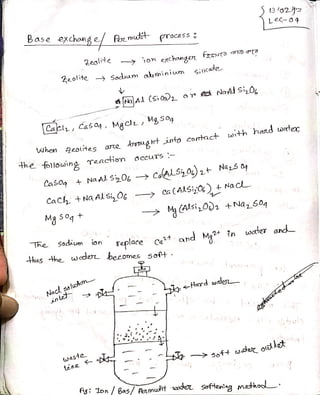 13.02.22
LEC-04
Base exchange / Permutit process:
Zeolite → ion exchanger
Zeolite → Sodium aluminium silicate
↓
Na Al (SiO3)2 or NaAl Si2O6
CaCl2, CaSO4, MgCl2, MgSO4
When Zeolites are brought into contact with hard water,
the following reaction occurs :-
CaSO4 + NaAl Si2O6 → Ca(AlSi2O6)2 + Na2SO4
CaCl2 + NaAl Si2O6 → Ca(AlSi2O6)2 + NaCl
MgSO4 + → Mg(AlSi2O6)2 + Na2SO4
The sodium ion replace Ca2+ and Mg2+ in water and
thus the water becomes soft.
NaCl solution
inlet
Hard water
waste
line
soft water outlet
Fig: Ion / Bas / Permutit water softening method.